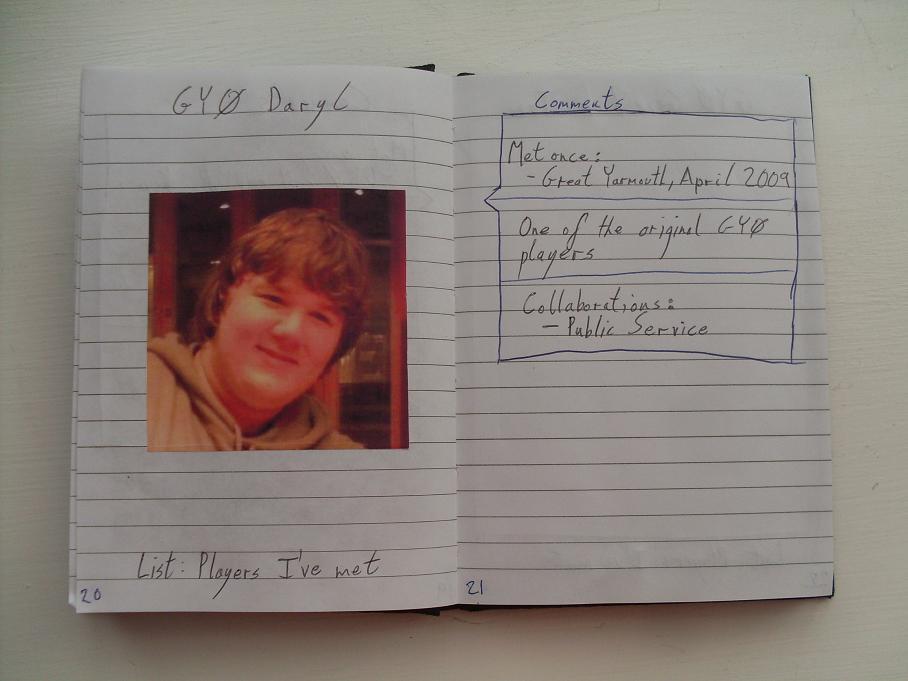 GYØ Daryl
List: Players I've met
20
Comments
Met once:
- Great Yarmouth, April 2009
One of the original GYØ
players
Collaborations:
- Public Service
21